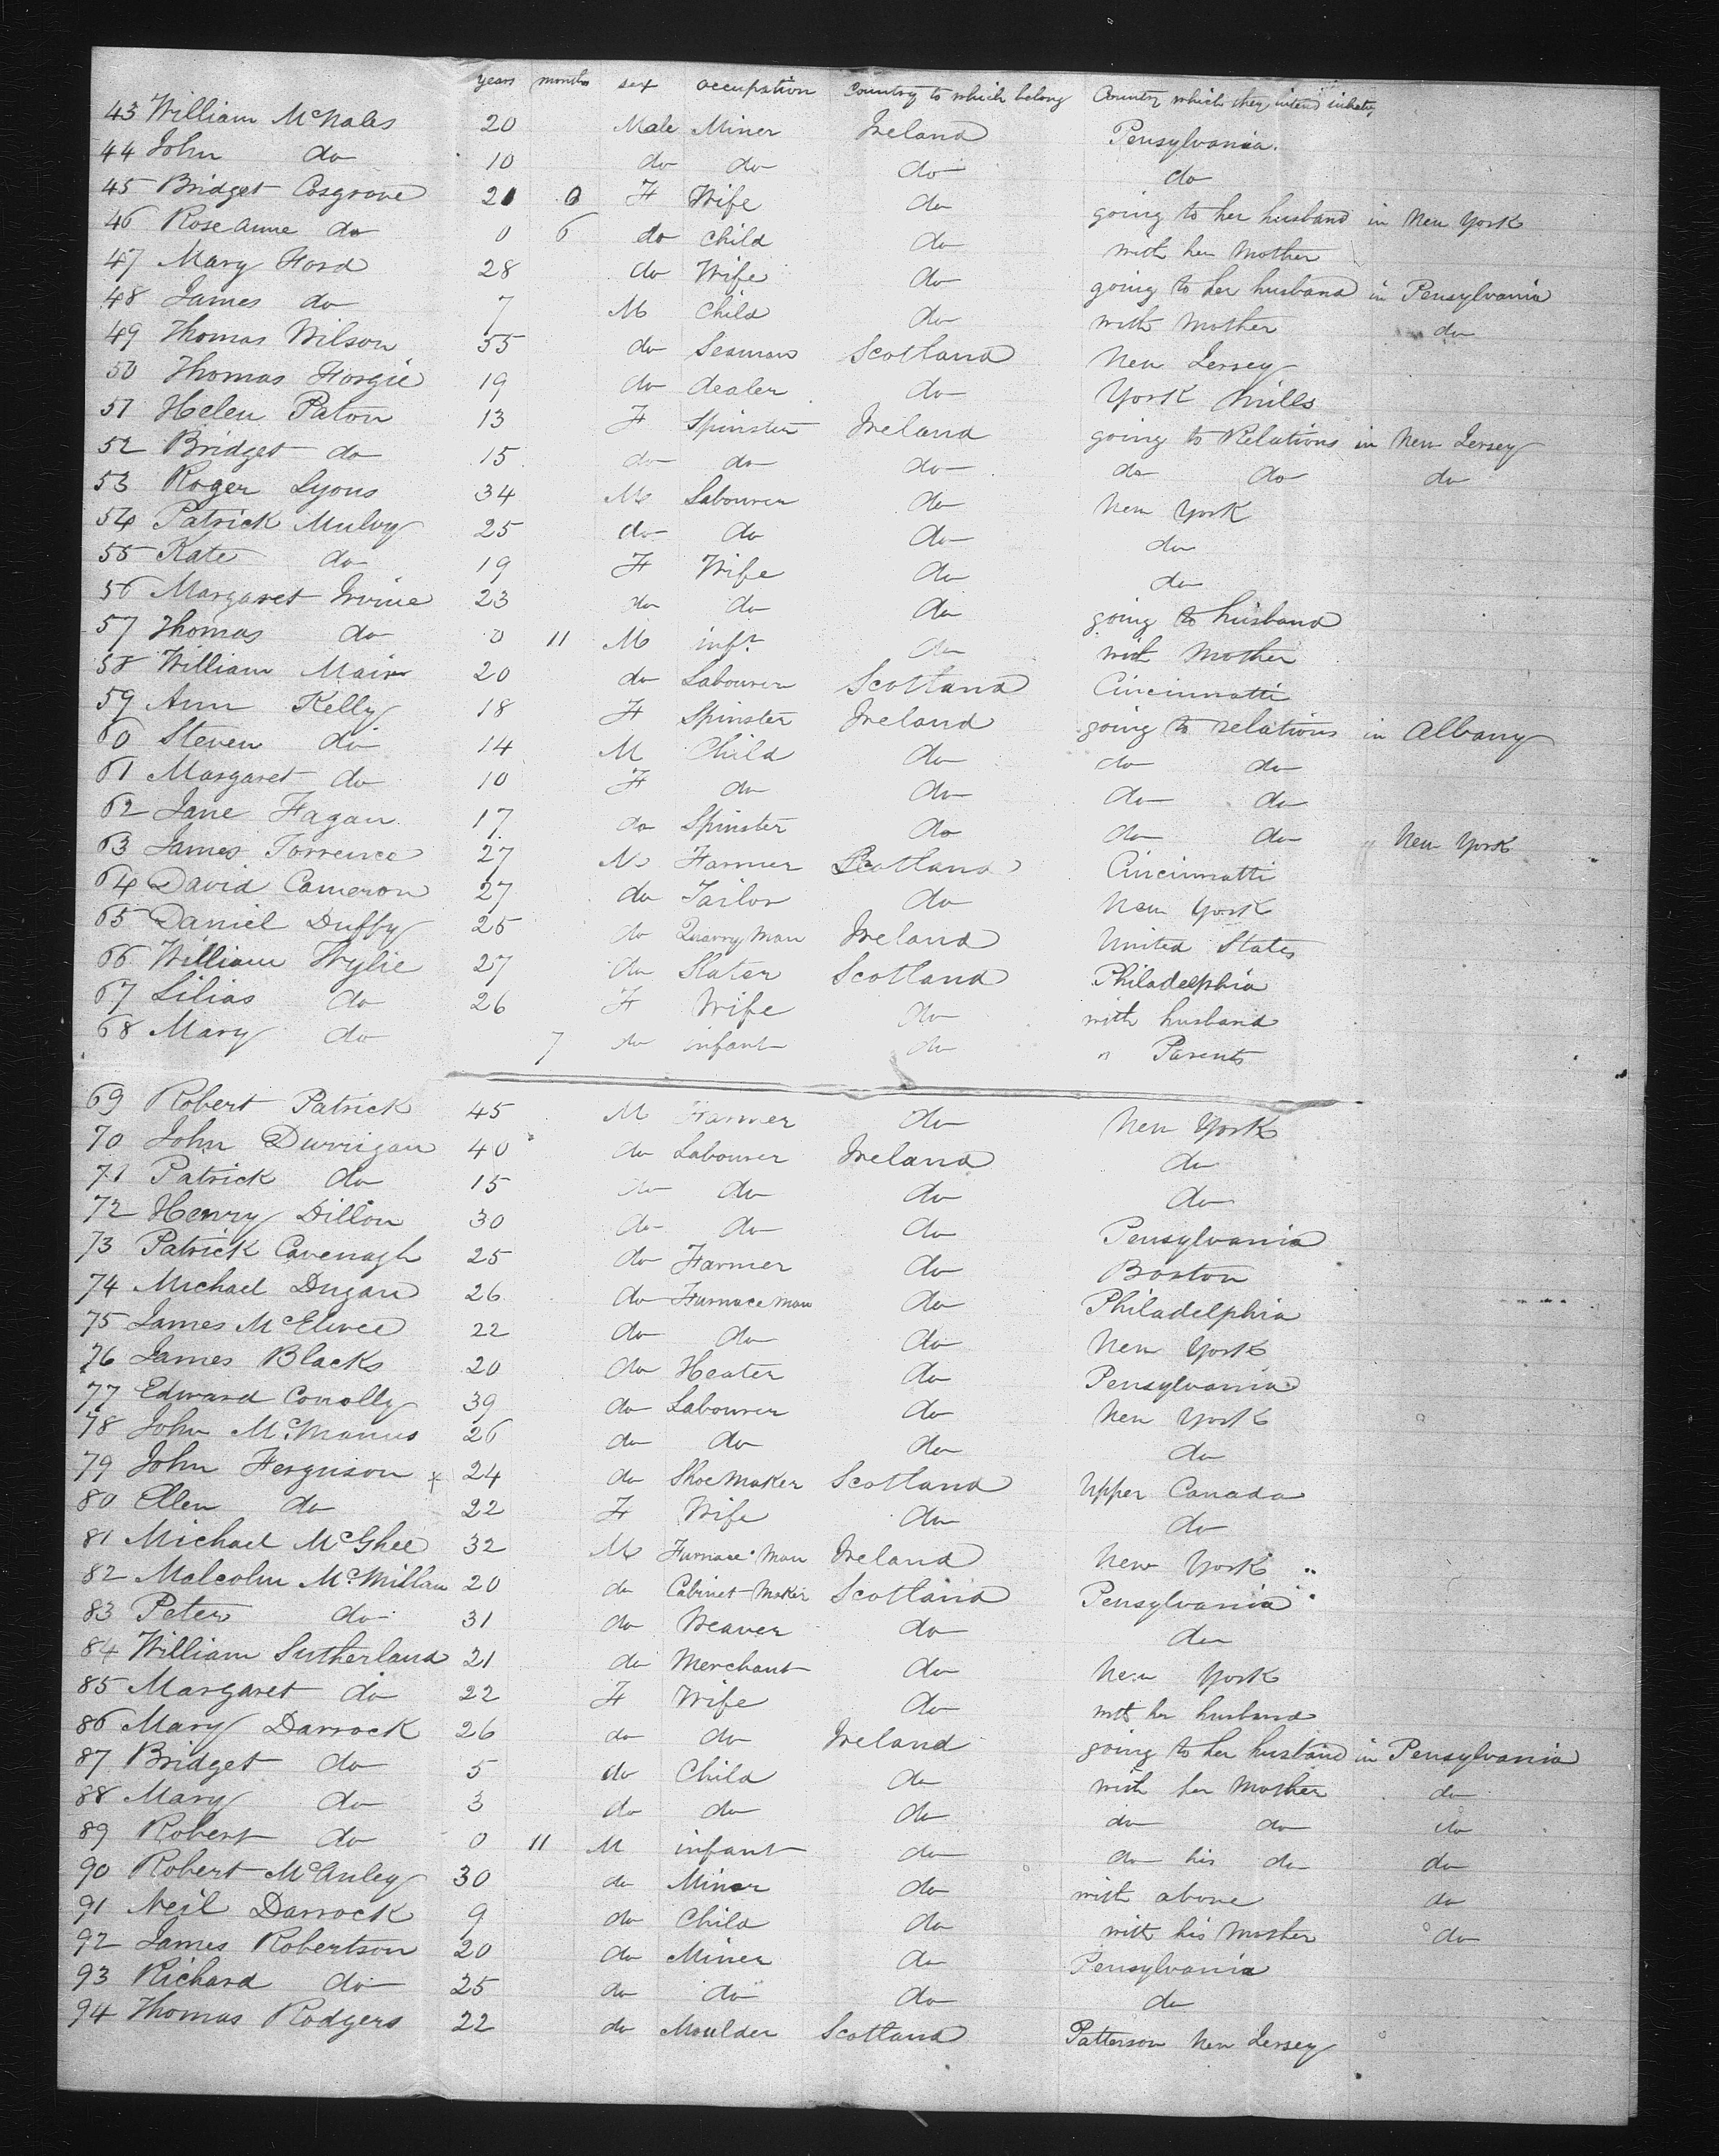 years months sex occupation Country to which belong Country which they intend inhabit
43 William McNales 20 Male Miner Ireland Pensylvania.
44 John do 10 do do do do
45 Bridget Cosgrove 20 0 F Wife do going to her husband in New York
46 Rose anne do 0 6 do child do with her Mother
47 Mary Ford 28 do Wife do going to her husband in Pensylvania
48 James do 7 M Child do with Mother do
49 Thomas Wilson 55 do Seaman Scotland New Jersey
50 Thomas Forgie 19 do dealer do York Mills
51 Helen Paton 13 F Spinster Ireland going to Relations in New Jersey
52 Bridget do 15 do do do do do do
53 Roger Lyons 34 M Labourer do New York
54 Patrick Mulvy 25 do do do do
55 Kate do 19 F Wife do do
56 Margaret Irvine 23 do do do going to husband
57 Thomas do 0 11 M inft do with Mother
58 William Main 20 do Labourer Scotland Cincinnatti
59 Ann Kelly 18 F Spinster Ireland going to relations in Albany
60 Steven do 14 M Child do do do
61 Margaret do 10 F do do do do
62 Jane Fagan 17 do Spinster do do do " New York
63 James Torrence 27 M Farmer Scotland Cincinnatti
64 David Cameron 27 do Tailor do New York
65 Daniel Duffy 25 do Quarry Man Ireland United States
66 William Wylie 27 do Slater Scotland Philadelphia
67 Lilias do 26 F Wife do with husband
68 Mary do 7 do infant do " Parents
69 Robert Patrick 45 M Farmer do New York
70 John Durrigan 40 do Labourer Ireland do
71 Patrick do 15 do do do do
72 Henry Dillon 30 do do do Pensylvania
73 Patrick Cavenagh 25 do Farmer do Boston
74 Michael Dugan 26 do Furnace man do Philadelphia
75 James McElwee 22 do do do New York
76 James Blacks 20 do Heater do Pensylvania
77 Edward Conolly 39 do Labourer do New York
78 John McManus 26 do do do do
79 John Ferguson x 24 do Shoe Maker Scotland Upper Canada
80 Ellen do 22 F Wife do do
81 Michael McGhee 32 M Furnace Man Ireland New York "
82 Malcolm McMillan 20 do Cabinet Maker Scotland Pensylvania "
83 Peter do 31 do Weaver do do
84 William Sutherland 21 do Merchant do New York
85 Margaret do 22 F Wife do with her husband
86 Mary Darrock 26 do do Ireland going to her husband in Pensylvania
87 Bridget do 5 do Child do with her Mother do
88 Mary do 3 do do do do do do
89 Robert do 0 11 M infant do do his do do
90 Robert McAuley 30 do Miner do with above do
91 Neil Darrock 9 do Child do with his Mother do
92 James Robertson 20 do Miner do Pensylvania
93 Richard do 25 do do do do
94 Thomas Rodgers 22 do Moulder Scotland Patterson New Jersey